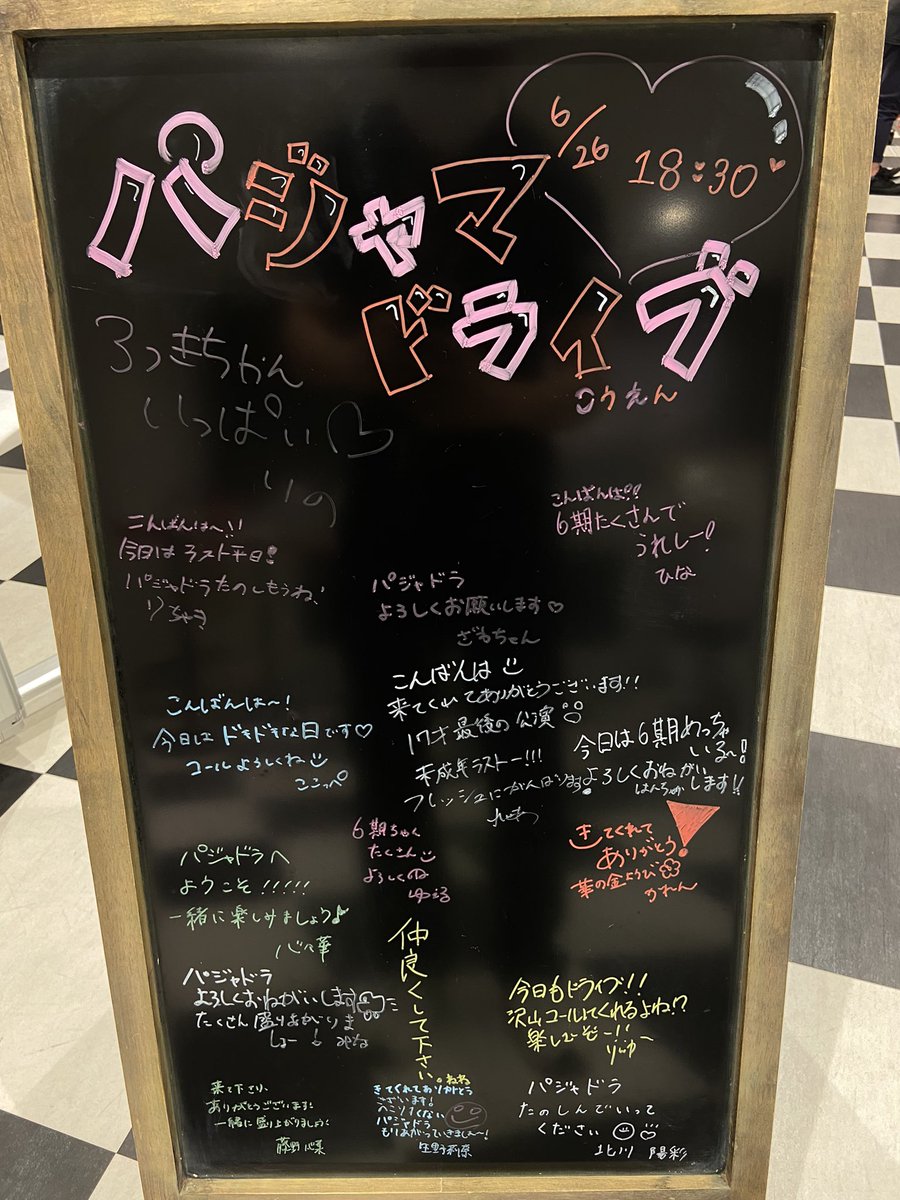 6/26
18:30
パジャマ
ドライブ
こうえん
ろっきちゃん
いっぱい♡
りの
こんばんは!!
6期たくさんで
うれしー!
ひな
こんばんは〜!!
今日はラスト平日!
パジャドラたのしもうね!
パジャドラ
よろしくお願いします♡
ざねちゃん
こんばんは
来てくれてありがとうございます!!
17才最後の公演
未成年ラストー!!!
フレッシュにがんばります!
こんばんは〜!
今日はドキドキな日です♡
コールよろしくね
ここっぺ
今日は6期めっちゃ
いる〜!
よろしくおねがい
します!!
はんちゃん
6期ちゃん
たくさん
よろしくね
ゆえる
きてくれて
ありがとう!
華の金ようび
かれん
パジャドラへ
ようこそ!!!!!
一緒に楽しみましょう♪
心々華
仲良くして下さい。
ねね
パジャドラ
よろしくおねがいします
たくさん盛りあがりま
しょー!
今日もドライブ!!
沢山コールしてくれるよね!?
楽しむぞー!!
りゅー
来て下さり、
ありがとうございます!
一緒に盛り上がりましょう
藤野心菜
きてくれてありがとう
ございます!
パジャドラ
もりあがっていきましょ〜!
生野莉奈
パジャドラ
たのしんでいって
ください
北川 陽彩